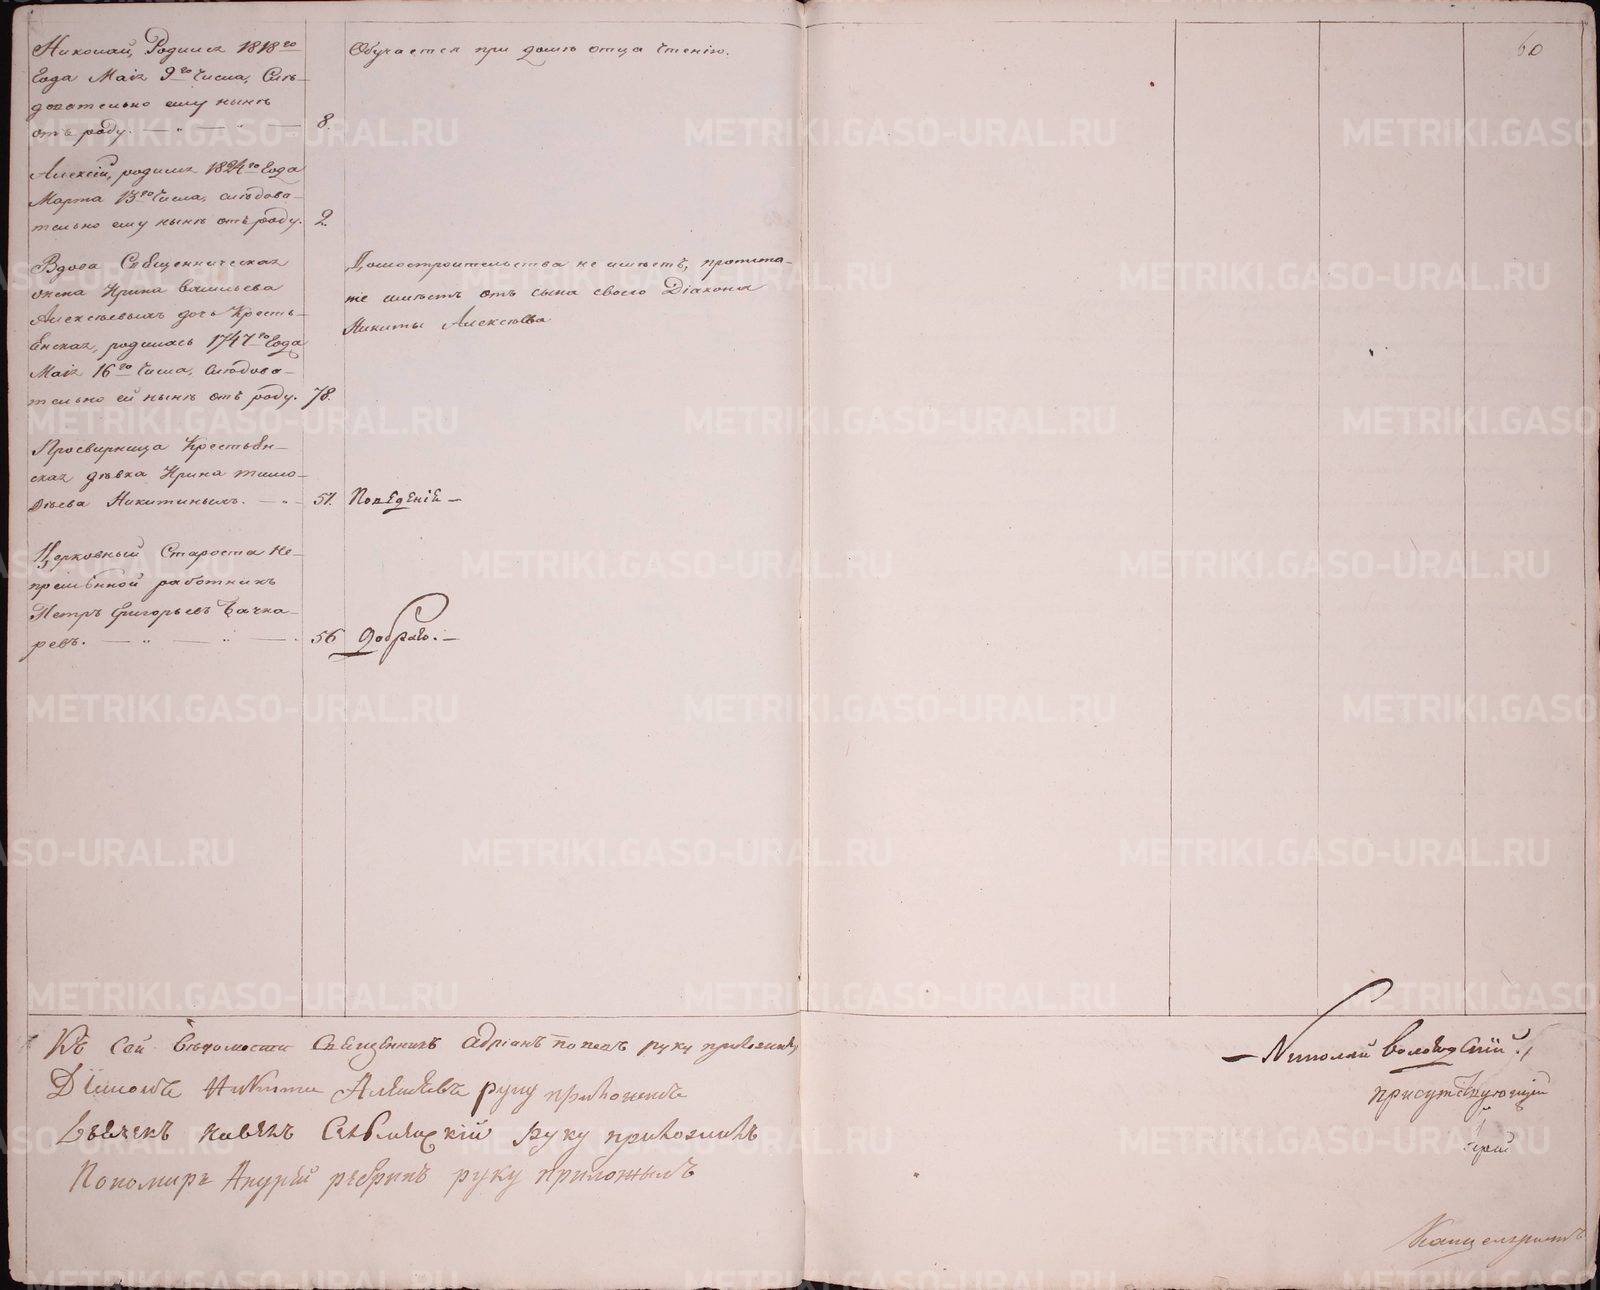 60
Николай, Родился 1818го
Года Маія 9го числа, Слѣ-
довательно ему нынѣ
отъ роду. — „ — „ — 8.
Обучается при домѣ отца чтенію.
Алексій, родился 1824го Года
Марта 13го числа, слѣдова-
тельно ему нынѣ отъ роду. 2.
Вдова Священническая
жена Ирина Васильева
Алексѣевыхъ дочь Кресть-
янская, родилась 1747го Года
Маія 16го числа, слѣдова-
тельно ей нынѣ отъ роду. 78.
Домостроительства не имѣетъ, пропита-
ніе имѣетъ отъ сына своего Діакона
Никиты Алексѣева
Просвирница Крестьян-
ская дѣвка Ирина Тимо-
фѣева Никитиныхъ. — „ — 57.
Поведеніе —
Церковный Староста Не-
премѣнной работникъ
Петръ Григорьевъ Бачка-
ревъ. — „ — „ — 56
Добраго. —
Къ сей вѣдомости Священникъ Адріанъ Поповъ руку приложилъ
Діаконъ Никита Алексѣевъ руку приложилъ
Дьячекъ Павелъ руку приложилъ
Пономарь руку приложилъ
— Николай
присутствующій
Іерей
Канцеляристъ
METRIKI.GASO-URAL.RU